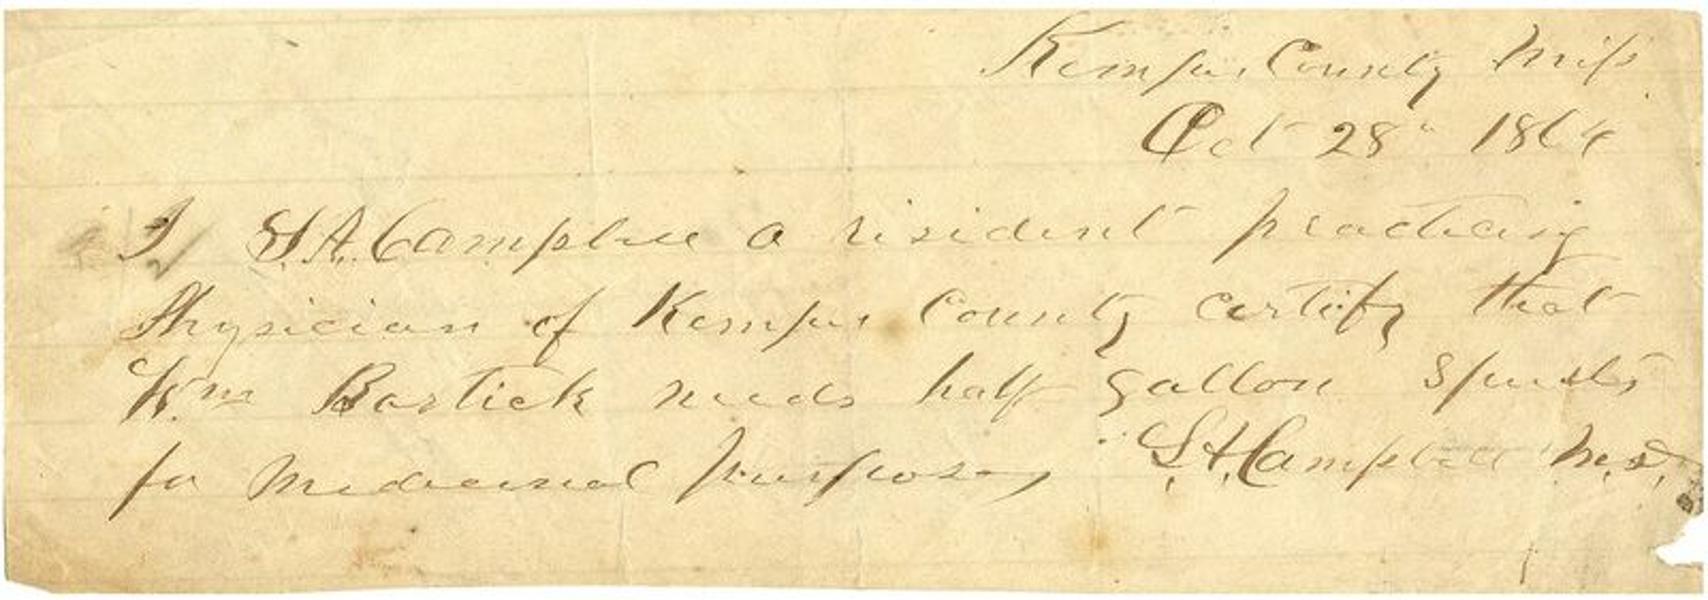 Kemper County Miss
Oct 28" 1864
I S.A. Campbell a resident practicing
Physician of Kemper County certify that
Wm Bostick needs half gallon spirits
for Medicinal purposes S.A. Campbell M.D.